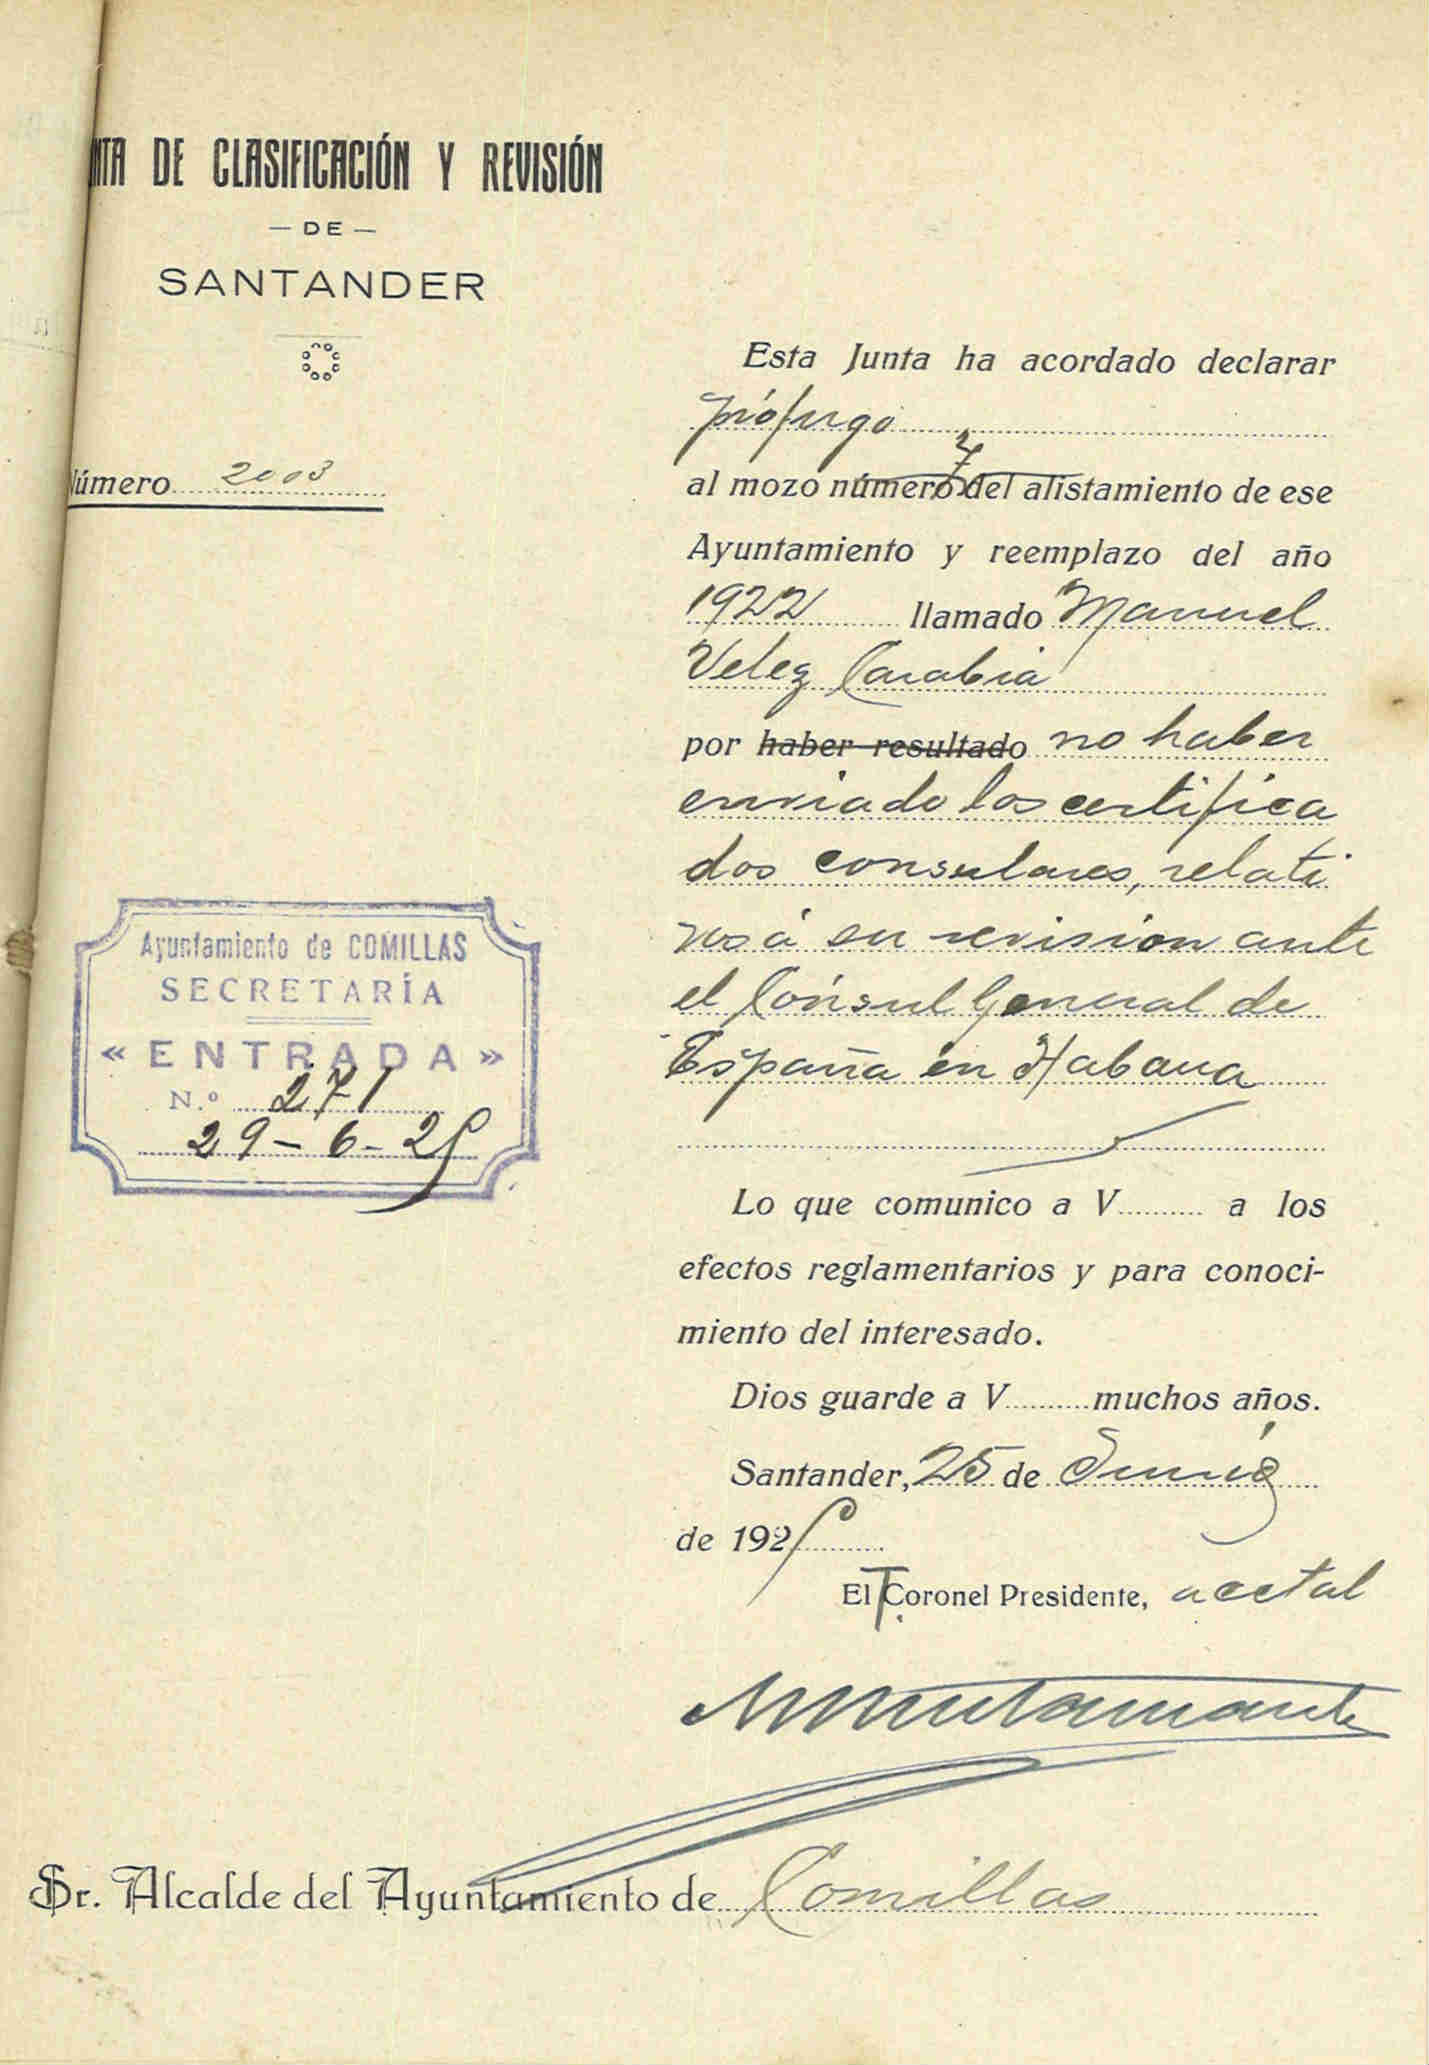 NTA DE CLASIFICACIÓN Y REVISIÓN
— DE —
SANTANDER
Número 2003
Esta Junta ha acordado declarar
prófugo
al mozo número 7 del alistamiento de ese
Ayuntamiento y reemplazo del año
1922 llamado Manuel
Velez Carabia
por haber resultado no haber
enviado los certifica
dos consulares, relati
vos á su revision ante
el Cónsul General de
España en Habana
Ayuntamiento de COMILLAS
SECRETARÍA
« ENTRADA »
N.º 271
29-6-25
Lo que comunico a V a los
efectos reglamentarios y para conoci-
miento del interesado.
Dios guarde a V muchos años.
Santander, 25 de Junio
de 1925
El T. Coronel Presidente, acctal
Sr. Alcalde del Ayuntamiento de Comillas